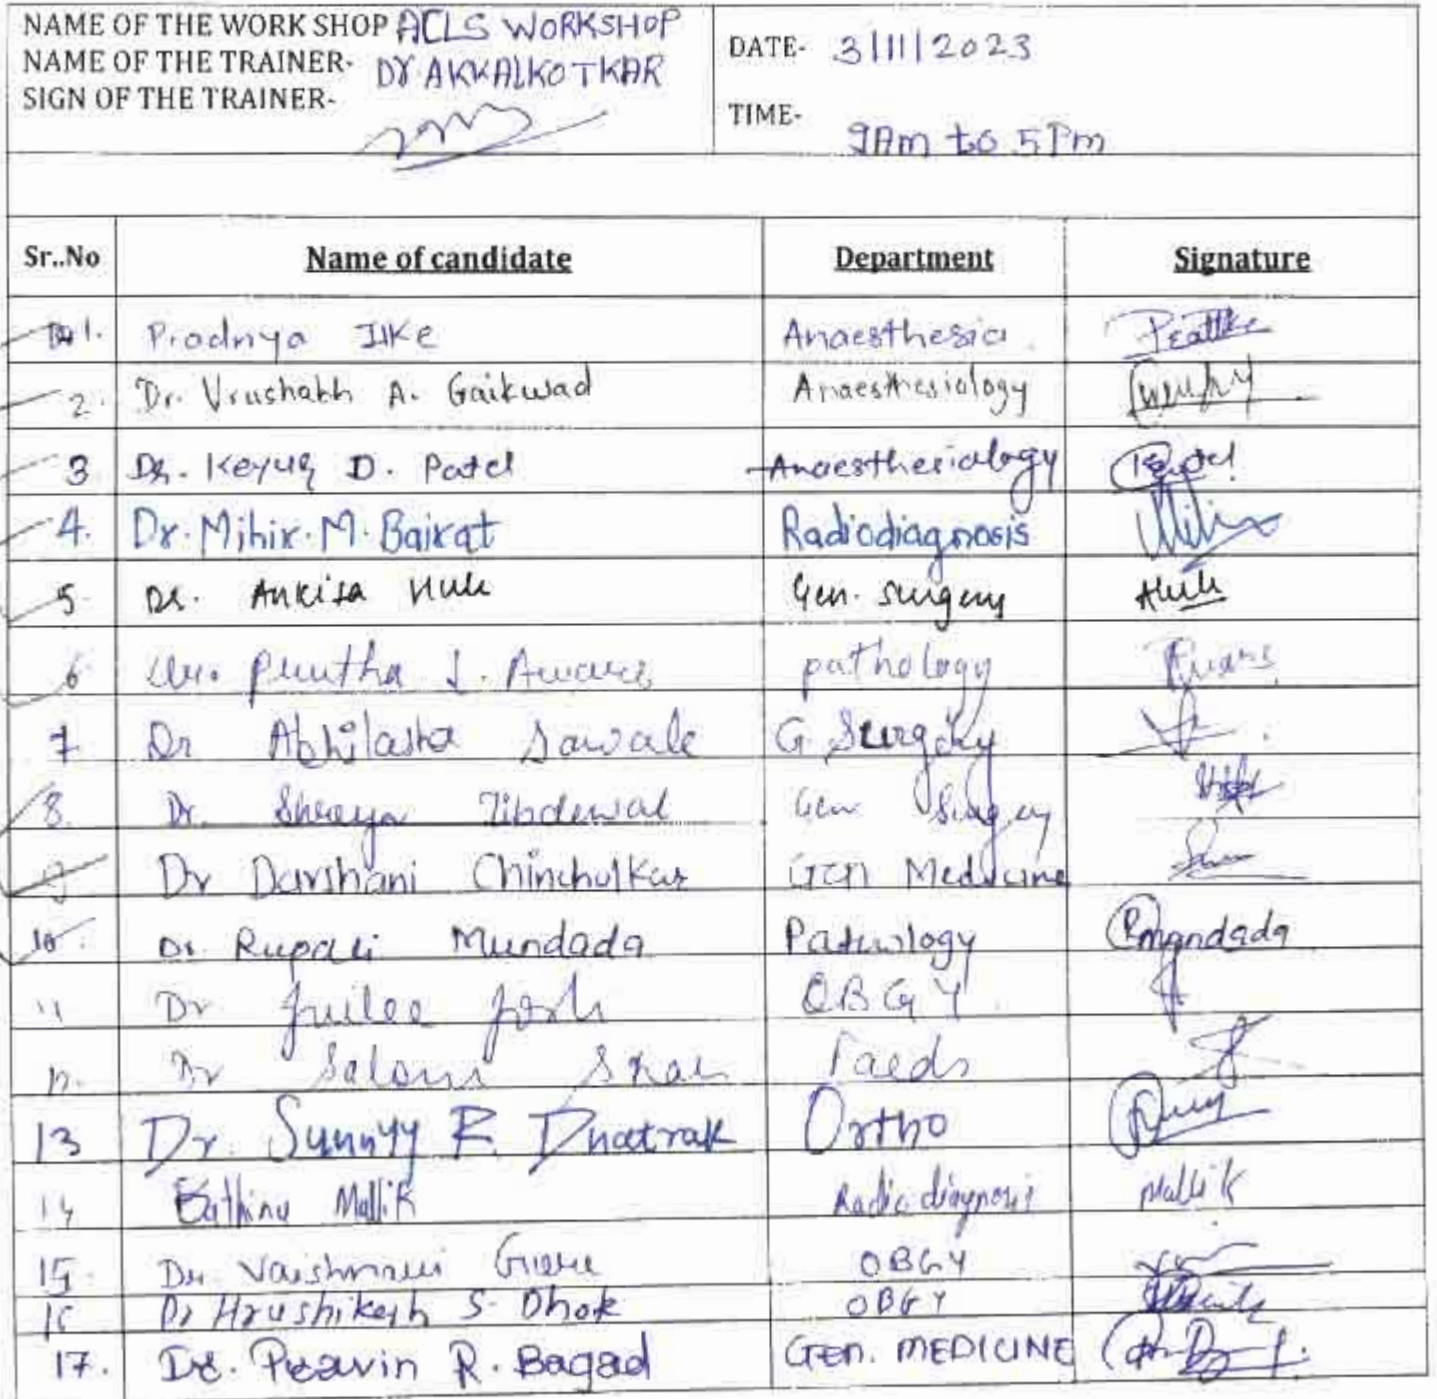 NAME OF THE WORK SHOP ACLS WORKSHOP
NAME OF THE TRAINER- Dr AKKALKOTKAR
SIGN OF THE TRAINER-
DATE- 3/11/2023
TIME- 9Am to 5Pm
Sr..No Name of candidate Department Signature
1. Pradnya Ilke Anaesthesia
2. Dr. Vrushabh A. Gaikwad Anaesthesiology
3 Dr. Keyur D. Patel Anaesthesiology
4. Dr. Mihir. M. Bairat Radiodiagnosis
5 Dr. Gen. surgery
6 pathology
7 Dr Abhilasha Sawale G. Surgery
8. Dr. Shreya Gen Surgery
9 Dr Darshani Chincholkar Gen Medicine
10. Dr. Rupali Mundada Pathology Rmundada
11 Dr Juilee Joshi OBGY
12. Dr Saloni Shah Paeds
13 Dr. Sunnyy R. Dhatrak Ortho
14 Mallik Radiodiagnosis Mallik
15 Dr Vaishnavi OBGY
16 Dr Hrushikesh S. Dhok OBGY
17. Dr. Pravin R. Bagad Gen. MEDICINE